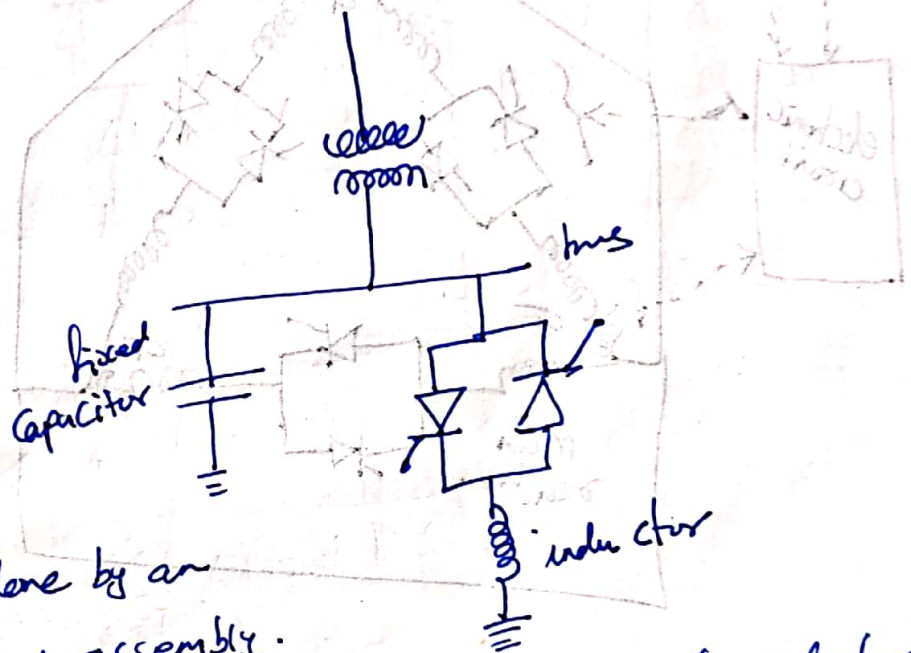 bus
fixed
capacitor
inductor
done by an
assembly.